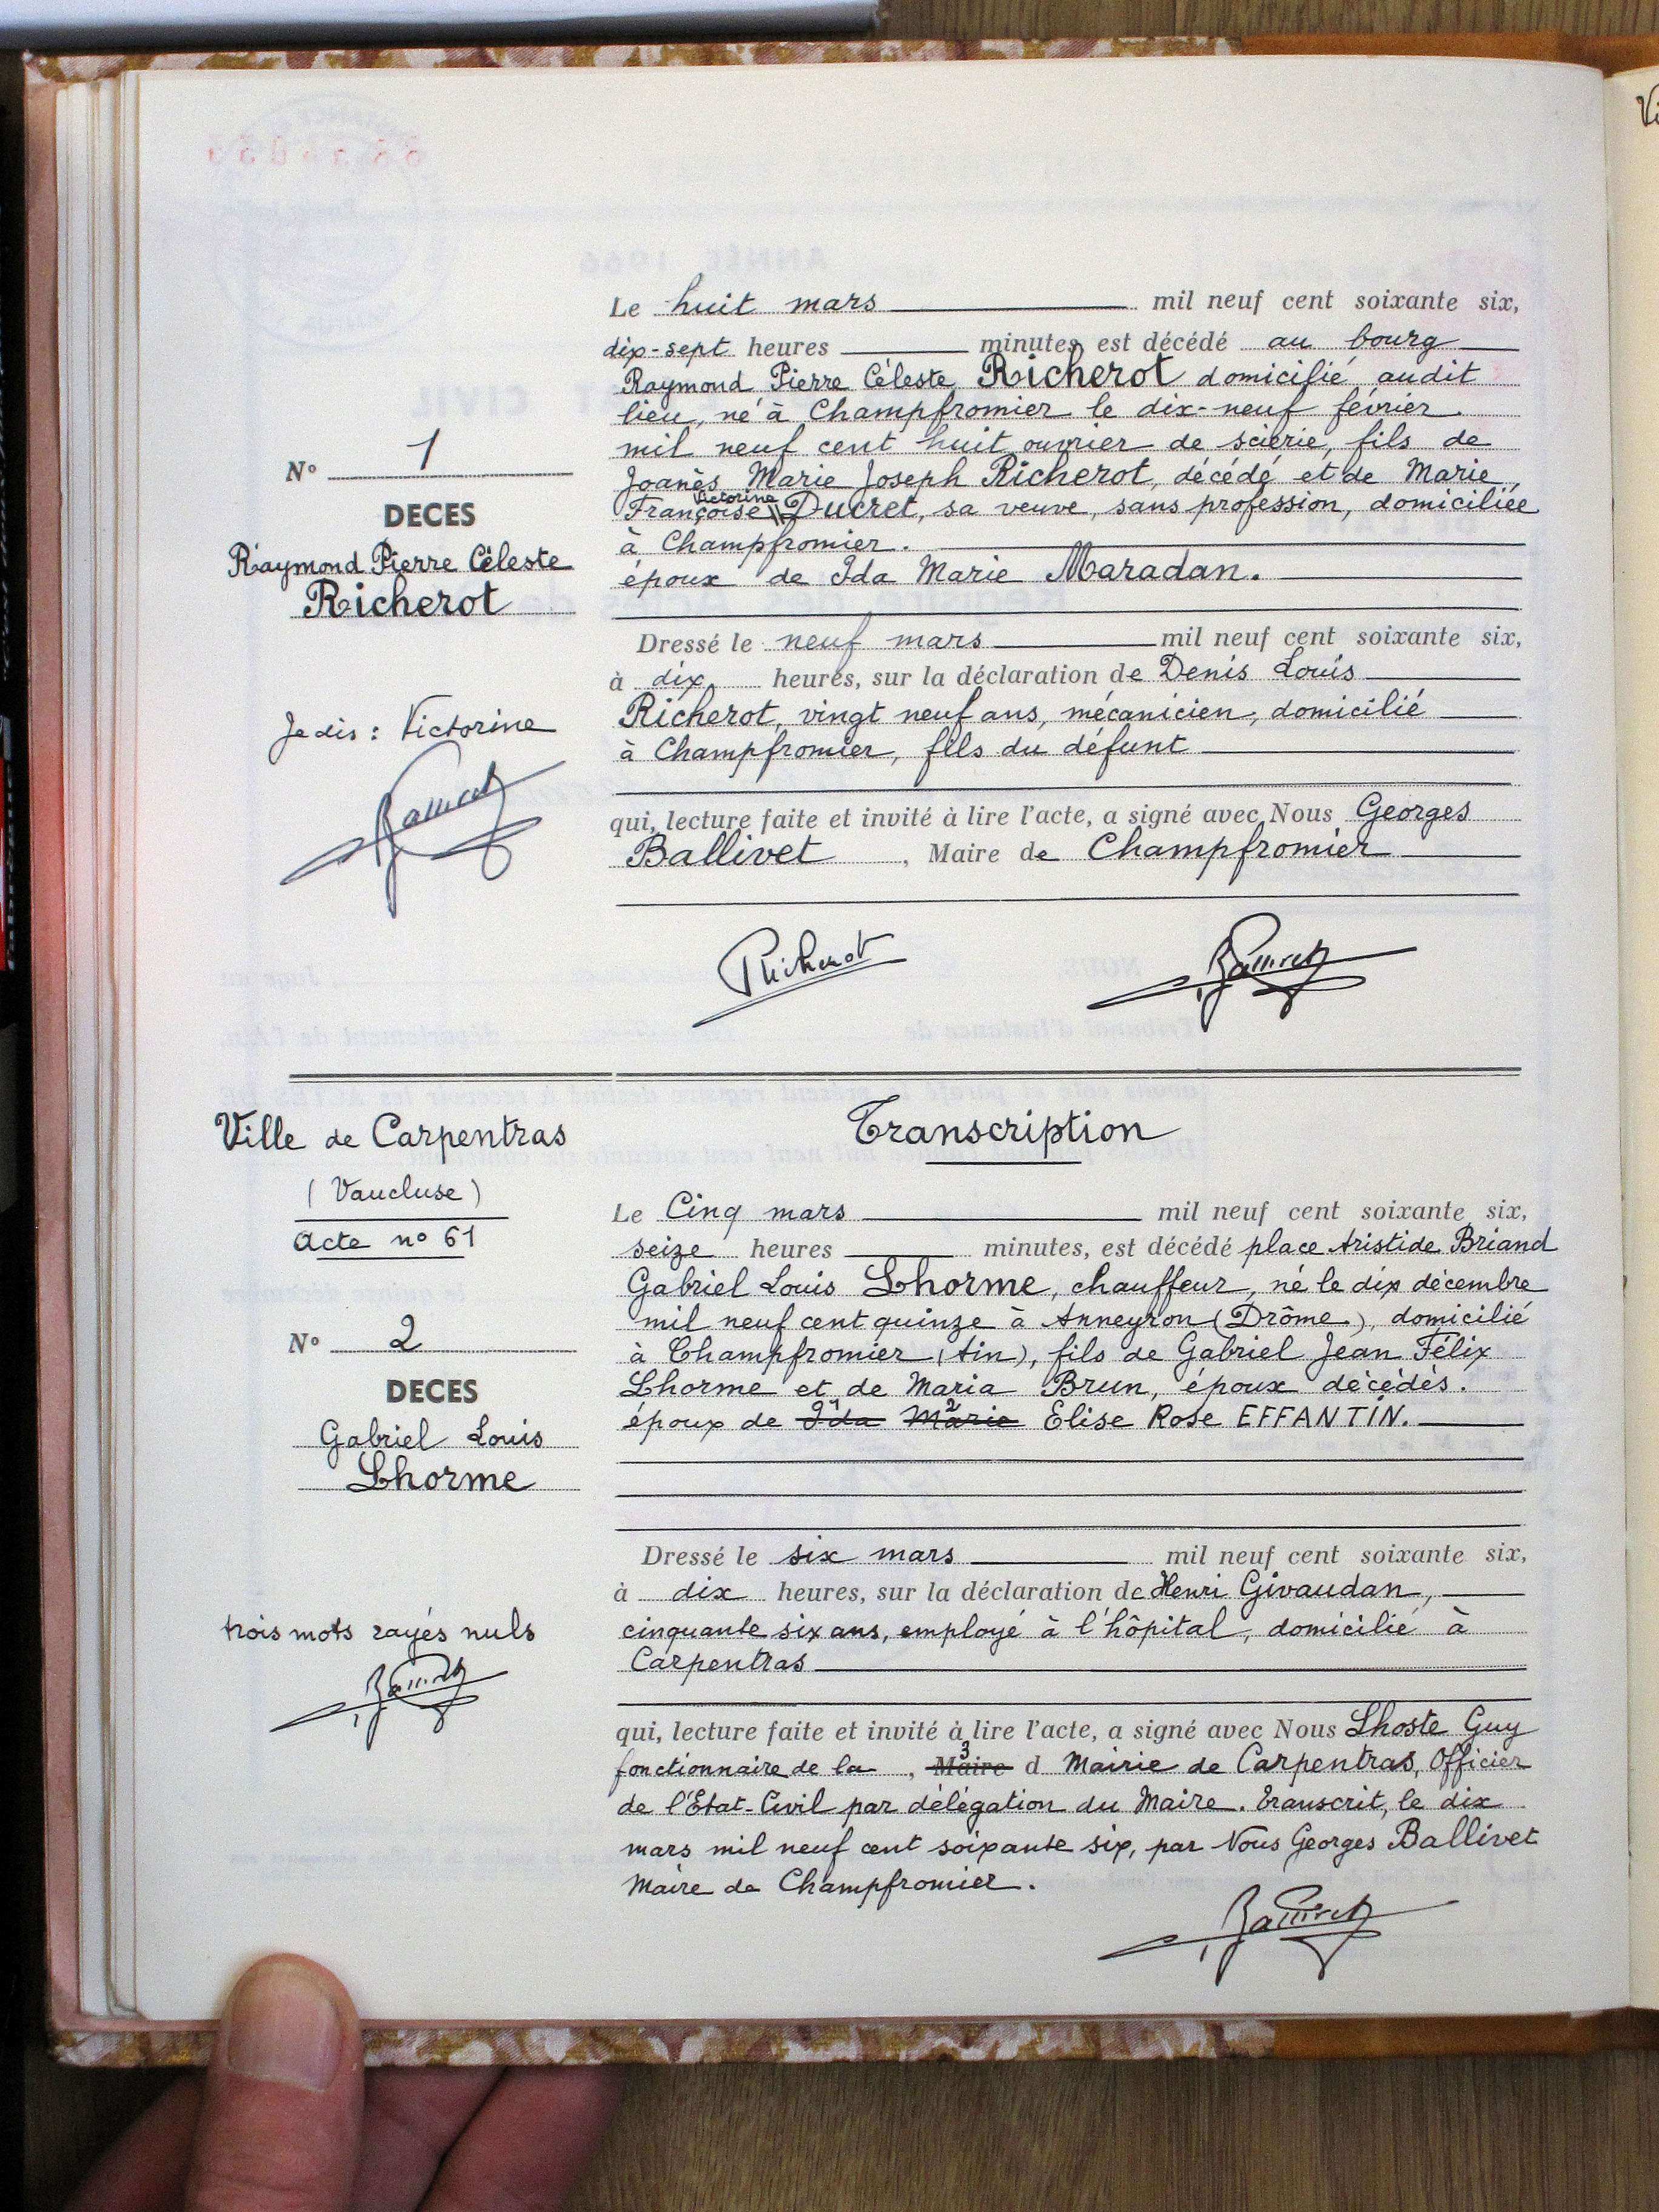 Le huit mars mil neuf cent soixante six,
dix-sept heures minutes est décédé au bourg
Raymond Pierre Céleste Richerot domicilié audit
lieu, né à Champfromier le dix-neuf février
mil neuf cent huit ouvrier de scierie, fils de
Joanès Marie Joseph Richerot, décédé et de Marie
Françoise Victorine Ducret, sa veuve, sans profession, domiciliée
à Champfromier.
époux de Ida Marie Maradan.
N° 1
DECES
Raymond Pierre Céleste
Richerot
Dressé le neuf mars mil neuf cent soixante six,
à dix heures, sur la déclaration de Denis Louis
Richerot, vingt neuf ans, mécanicien, domicilié
à Champfromier, fils du défunt
Je dis : Victorine
qui, lecture faite et invité à lire l'acte, a signé avec Nous Georges
Ballivet, Maire de Champfromier
Richerot
Ville de Carpentras
(Vaucluse)
Acte n° 61
Transcription
Le Cinq mars mil neuf cent soixante six,
seize heures minutes, est décédé place Aristide Briand
Gabriel Louis Lhorme, chauffeur, né le dix décembre
mil neuf cent quinze à Anneyron (Drôme), domicilié
à Champfromier (Ain), fils de Gabriel Jean Félix
Lhorme et de Maria Brun, époux décédés.
époux de Ida 1 Marie 2 Elise Rose EFFANTIN.
N° 2
DECES
Gabriel Louis
Lhorme
Dressé le six mars mil neuf cent soixante six,
à dix heures, sur la déclaration de Henri Givaudan,
cinquante six ans, employé à l'hôpital, domicilié à
Carpentras
trois mots rayés nuls
qui, lecture faite et invité à lire l'acte, a signé avec Nous Lhoste Guy
fonctionnaire de la , Maire 3 d Mairie de Carpentras, Officier
de l'Etat-Civil par délégation du Maire. Transcrit, le dix
mars mil neuf cent soixante six, par Nous Georges Ballivet
Maire de Champfromier.